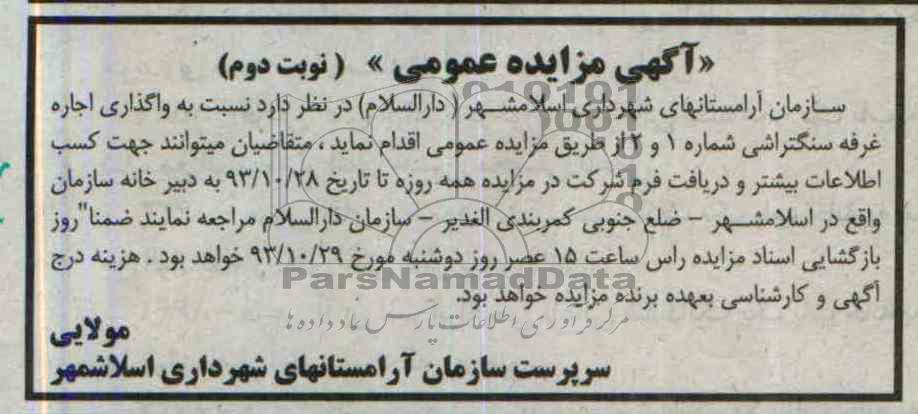 «آگهی مزایده عمومی» (نوبت دوم)
سازمان آرامستانهای شهرداری اسلامشهر (دارالسلام) در نظر دارد نسبت به واگذاری اجاره
غرفه سنگتراشی شماره ۱ و ۲ از طریق مزایده عمومی اقدام نماید ، متقاضیان میتوانند جهت کسب
اطلاعات بیشتر و دریافت فرم شرکت در مزایده همه روزه تا تاریخ ۹۳/۱۰/۲۸ به دبیر خانه سازمان
واقع در اسلامشهر – ضلع جنوبی کمربندی الغدیر – سازمان دارالسلام مراجعه نمایند ضمنا"روز
بازگشایی اسناد مزایده راس ساعت ۱۵ عصر روز دوشنبه مورخ ۹۳/۱۰/۲۹ خواهد بود . هزینه درج
آگهی و کارشناسی بعهده برنده مزایده خواهد بود.
ParsNamadData
مرکز فرآوری اطلاعات پارس نماد داده ها
مولایی
سرپرست سازمان آرامستانهای شهرداری اسلاشمهر